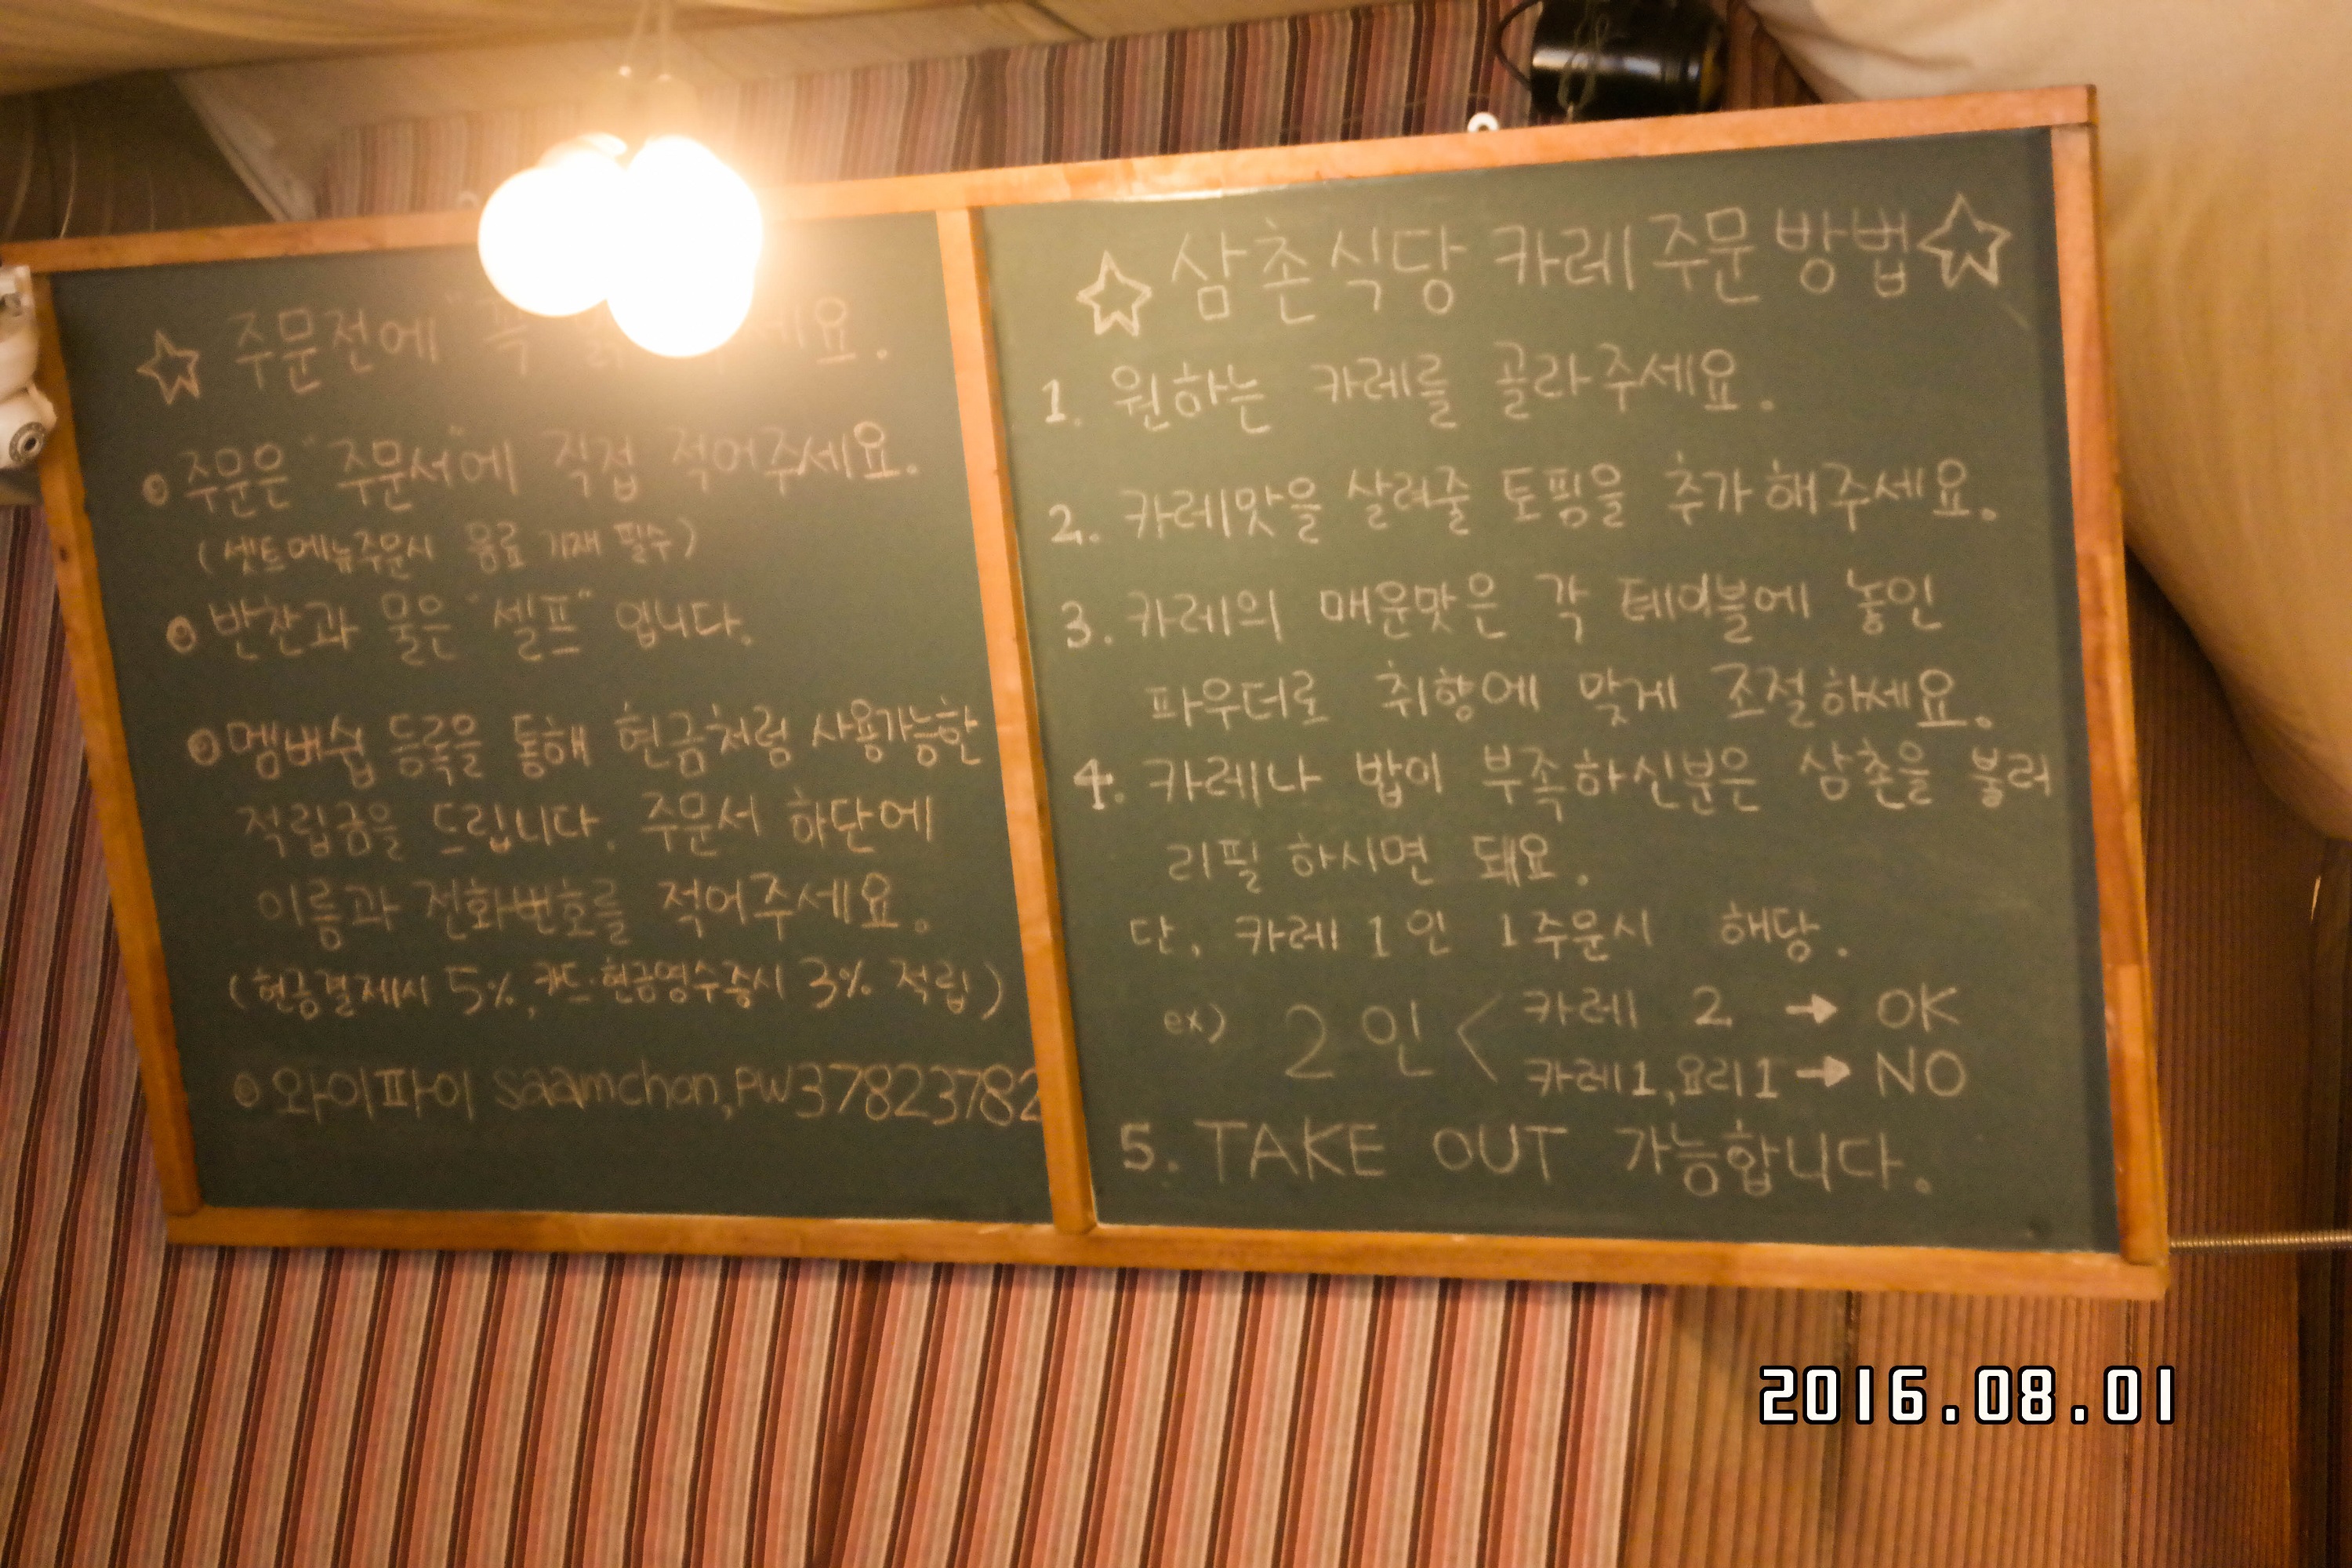 ☆ 주문전에 "꼭 세요.
• 주문은 "주문서"에 직접 적어주세요.
(셋트메뉴주문시 음료 기재 필수)
• 반찬과 물은 "셀프" 입니다.
• 멤버쉽 등록을 통해 현금처럼 사용가능한
적립금을 드립니다. 주문서 하단에
이름과 전화번호를 적어주세요.
(현금결제시 5%, 카드·현금영수증시 3% 적립)
• 와이파이 saamchon, PW37823782
☆ 삼촌식당 카레주문방법 ☆
1. 원하는 카레를 골라주세요.
2. 카레맛을 살려줄 토핑을 추가해주세요.
3. 카레의 매운맛은 각 테이블에 놓인
파우더로 취향에 맞게 조절하세요.
4. 카레나 밥이 부족하신분은 삼촌을 불러
리필 하시면 돼요.
단, 카레 1인 1주문시 해당.
ex) 2인 < 카레 2 → OK
카레1, 요리1 → NO
5. TAKE OUT 가능합니다.
2016.08.01